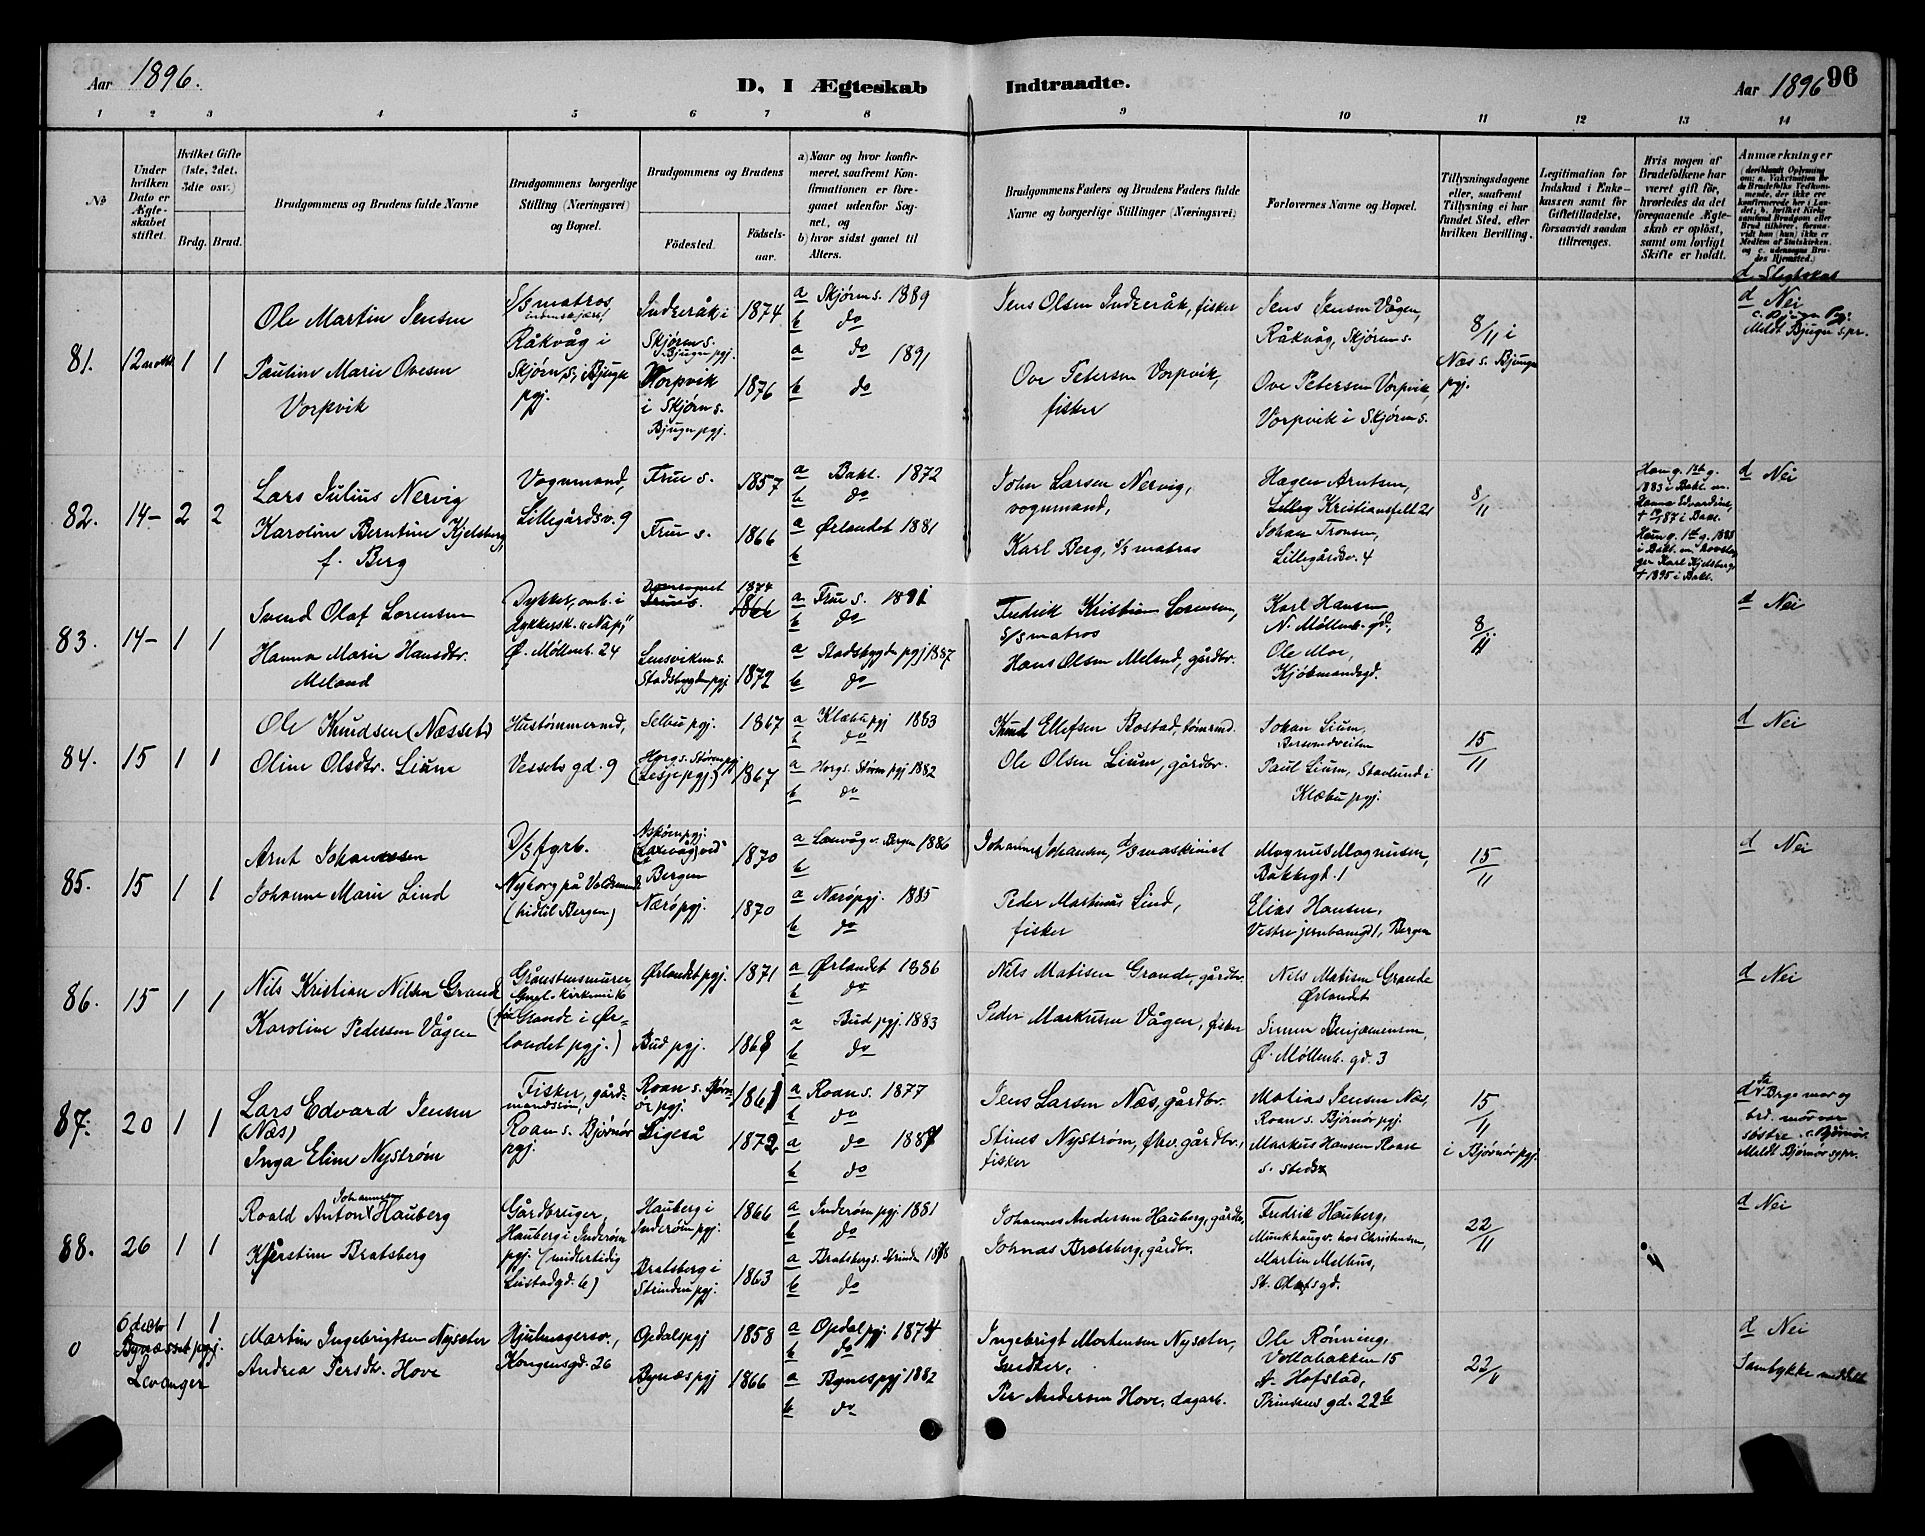 Aar 1896.
D, I Ægteskab
Indtraadte.
Aar 1896
96
1 2 3 4 5 6 7 8 9 10 11 12 13 14
No
Under hvilken Dato er Ægteskabet stiftet.
Hvilket Gifte (1ste, 2det, 3die osv.)
Brdg. Brud.
Brudgommens og Brudens fulde Navne
Brudgommens borgerlige Stilling (Næringsvei) og Bopæl.
Brudgommens og Brudens
Födested.
Födselsaar.
a) Naar og hvor konfirmeret, saafremt Konfirmationen er foregaaet udenfor Sognet, og
b) hvor sidst gaaet til Alters.
Brudgommens Faders og Brudens Faders fulde Navne og borgerlige Stillinger (Næringsvei)
Forlovernes Navne og Bopæl.
Tillysningsdagene eller, saafremt Tillysning ei har fundet Sted, efter hvilken Bevilling.
Legitimation for Indskud i Enkekassen samt for Giftetilladelse, forsaavidt saadan tiltrænges.
Hvis nogen af Brudefolkene har været gift før, hvorledes da det foregaaende Ægteskab er oplöst, samt om lovligt Skifte er holdt.
Anmærkninger
d Slegtskab
81.
1 1
Ole Martin Jensen
Pauline Marie Ovesen
Vorpvik
S/s matros
Råkvåg i
Skjørn s, Bjugn
pgj.
Indreråk i
Skjørn s.
Bjugn pgj.
Vorpvik
i Skjørn s.
Bjugn pgj.
1874
1876
a Skjørn s. 1889
b do
a do 1891
b do
Jens Olsen Indreråk, fisker
Ove Petersen Vorpvik,
fisker
Jens Jensen Vågen,
Råkvåg, Skjørn s.
Ove Petersen Vorpvik,
Vorpvik i Skjørn s.
8/11 i
Næs s. Bjugn
pgj.
d Nei
c. Bjugn Pgj.
Meldt Bjugn s.pr.
82.
14- 2 2
Lars Julius Nervig
Karoline Berntine Kjelsberg
f. Berg
Vognmand,
Lillegårdsv. 9
Frue s.
Frue s.
1857
1866
a Bakl. 1872
b do
a Ørlandet 1881
b
John Larsen Nervig,
vognmand,
Karl Berg, s/s matros
Hagen Arntsen,
Lilleg Kristiansfelt 21
Johan Tronsen,
Lillegårdsv. 4
8/11
Han g. 1ste g.
1883 i Bakl. m.
Hanna Edvardine,
+ 87 i Bakl.
Hun g. 1ste g. 1888
i Bakl. m.
Karl Kjelsberg
+ 1895 i Bakl.
d Nei
83.
14- 1 1
Svend Olaf Lorensen
Hanna Marie Hansdtr.
Meland
Dykker, omb. i
dykkersk. "Nap",
Ø. Møllenb. 24
Domsognet
Frue s.
Lensviken s.
Stadsbygden pgj
1874
1866
1872
a Frue s. 1891
b do
a Stadsbygden pgj 1887
b do
Fredrik Kristian Lorensen,
S/s matros
Hans Olsen Meland, gårdbr.
Karl Hansen
N. Møllenb. gd,
Ole Moe,
Kjøbmandsgd.
8/11
d Nei
84.
15 1 1
Ole Knudsen (Næsset)
Oline Olsdtr. Lium
Hustømmermd,
Vessets gd. 9
Selbu pgj.
Horg s. Støren pgj
(Lesje pgj)
1867
1867
a Klæbu pgj 1883
b do
a Horg s. Støren pgj 1882
b do
Knud Ellefsen Bostad, tømrmd.
Ole Olsen Lium, gårdbr.
Johan Lium,
Bersvendveiten
Paul Lium, Stavlund i
Klæbu pgj.
15/11
d Nei
85.
15 1 1
Arnt Johannessen
Johanne Marie Lind
D/s fyrb.
Nyborg på
(hidtil Bergen)
Askøen pgj.
(Laxevåg) ved
Bergen
Nærø pgj.
1870
1870
a Laxevåg v. Bergen 1886
b
a Nærø pgj. 1885
b do
Johannes Johansen, d/s maskinist
Peder Martinus Lind,
fisker
Magnus Magnusen,
Bakkegt. 1
Elias Hansen,
Vestre jernbanegd 1, Bergen
15/11
d Nei
86.
15 1 1
Nils Kristian Nilsen Grande
Karoline Pedersen Vågen
Gråstensmurer,
(fra Grande i Ør-
landet pgj.)
Ørlandet pgj.
Bud pgj.
1871
1868
a Ørlandet 1886
b do
a Bud pgj. 1883
b do
Nils Matisen Grande, gårdbr.
Peder Markusen Vågen, fisker
Nils Matisen Grande
Ørlandet
Simen Benjaminsen,
Ø. Møllenb. gd. 3
d Nei
87.
20 1 1
Lars Edvard Jensen
(Næs)
Inga Eline Nystrøm
Fisker, gård-
mandssøn,
Roan s. Bjørnør
pgj.
Roan s. Bjørn-
ør pgj.
Ligeså
1861
1872
a Roan s. 1877
b do
a do 1887
b do
Jens Larsen Næs, gårdbr.
Stinus Nystrøm, gårdbr.,
fisker
Matias Jensen Næs,
Roan s. Bjørnør pgj.
Markus Hansen Roan
s. steds
15/11
i Bjørnør pgj.
d Ja
Brgs mor og
brd. mor var
søstre. c. Bjørnør.
Meldt Bjørnør sgpr.
88.
26 1 1
Roald Anton Johannesen Hauberg
Kjerstine Bratsberg
Gårdbruger,
Hauberg i Inderøen
pgj. (midlertidig
Leistadgd. 6)
Hauberg i
Inderøen pgj.
Bratsberg i
Strinden pgj.
1866
1863
a Inderøen pgj 1881
b do
a Bratsberg s. Strinden 1878
b do
Johannes Andersen Hauberg, gårdbr.
Johnas Bratsberg, gårdbr.
Fredrik Hauberg,
Munkhaugv. hos Christensen,
Martin Melhus,
St. Olafsgd.
22/11
d Nei
0
6 decbr 1 1
Bynæsset pgj.
Levanger
Martin Ingebrigtsen Nysæter
Andrea Persdtr. Hove
Hjulmagersv.,
Kongensgd. 26
Opdals pgj
Bynæs pgj
1858
1866
a Opdal pgj. 1874
b do
a Bynes pgj 1882
b do
Ingebrigt Mortensen Nysæter,
Per Andersen Hove, dagarb.
Ole Rønning,
Vollabakken 15
A. Hofstad,
Prinsens gd. 22b
22/11
d Nei
Samtykke meddelt